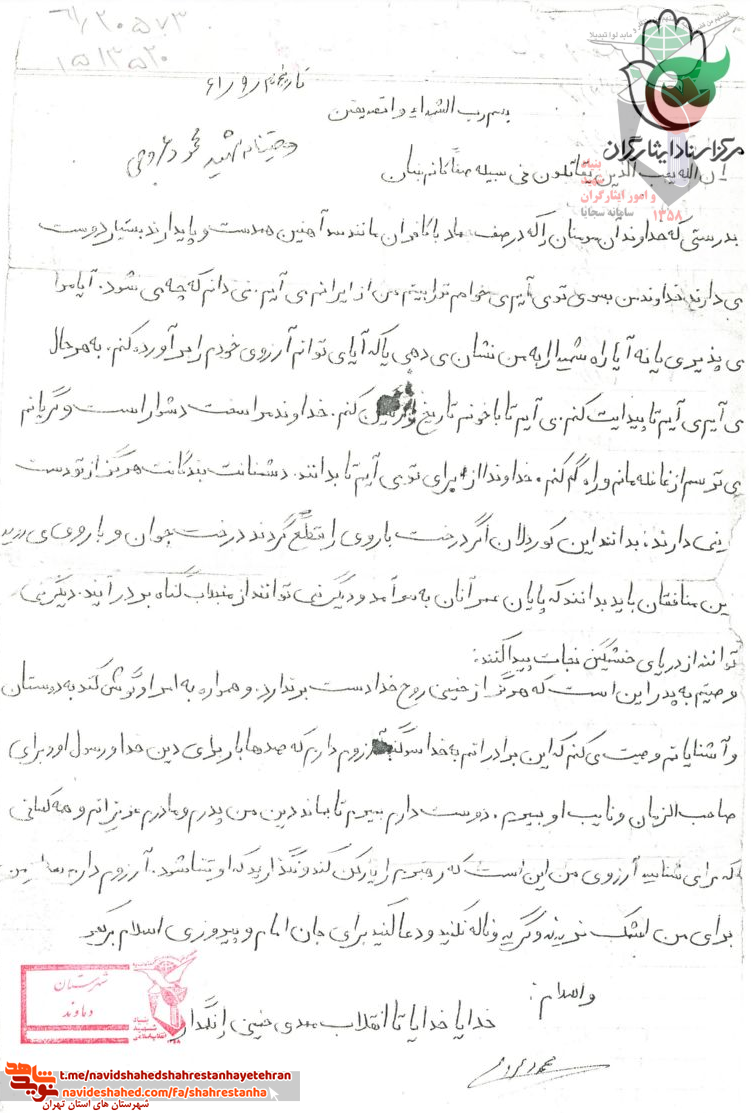 ۶۱/۲۰۵۷۳
۱۵۱۳۵۲۰
مرکز اسناد ایثارگران
بنیاد
شهید
و امور ایثارگران
۱۳۵۸ سامانه سجایا
بسم رب الشهداء و الصدیقین
وصیتنامه شهید محمود
ان الله یحب الذین یقاتلون فی سبیله صفاً کانهم بنیان
بدرستی که خداوند آن مومنان را که در صف جهاد با کافران مانند سد آهنین همدست و پایدارند بسیار دوست
می دارند خداوند من بسوی تو می آیم می خواهم تو را ببینم من از ایرانم می آیم نمی دانم که چه می شود. آیا مرا
می پذیری یا نه آیا راه شهیدان را به من نشان می دهی یا که آیا می توانم آرزوی خودم را برآورده کنم. به هر حال
می آیم می آیم تا پیدایت کنم. می آیم تا با خونم تاریخ را کنم. خداوند مرا سخت دشوار است و گریانم
می ترسم از قافله مانم و راه گم کنم. خداوندا برای تو می آیم تا بدانند. دشمنانت بندگانت هرگز از تو دست
بر نمی دارند؛ بدانند این کوردلان اگر درخت باروی را قطع گردند درخت جوان و باروی می
این منافقان باید بدانند که پایان عمر آنان به سر آمد و دیگر نمی توانند از منجلاب گناه بدر آیند. دیگر نمی
توانند از دریای خشمگین نجات پیدا کنند:
وصیتم به پدر این است که هرگز از خمینی روح خدا دست برندارد. و همواره به امر او گوش کند به دوستان
و آشنایانم وصیت می کنم که این برادرانم به خدا سوگند آرزو دارم که صدها بار برای دین خدا و رسول او و برای
صاحب الزمان و نایب او بمیرم. دوست دارم بمیرم تا بماند دین من پدرم و مادرم عزیزانم و همه کسانی
که مرا می شناسید آرزوی من این است که رهبرم را یاری کنند و نگذارید که او تنها شود. آرزو دارم بعد از من
برای من اشک نریزند و گریه و ناله نکنید و دعا کنید برای جان امام و پیروزی اسلام بر کفر
والسلام:
خدایا خدایا تا انقلاب مهدی خمینی را نگهدار
شهرستان
دماوند
بنیاد
شهید
انقلاب اسلامی
شاهد
نوید
t.me/navidshahedshahrestanhayetehran
navideshahed.com/fa/shahrestanha
شهرستان های استان تهران